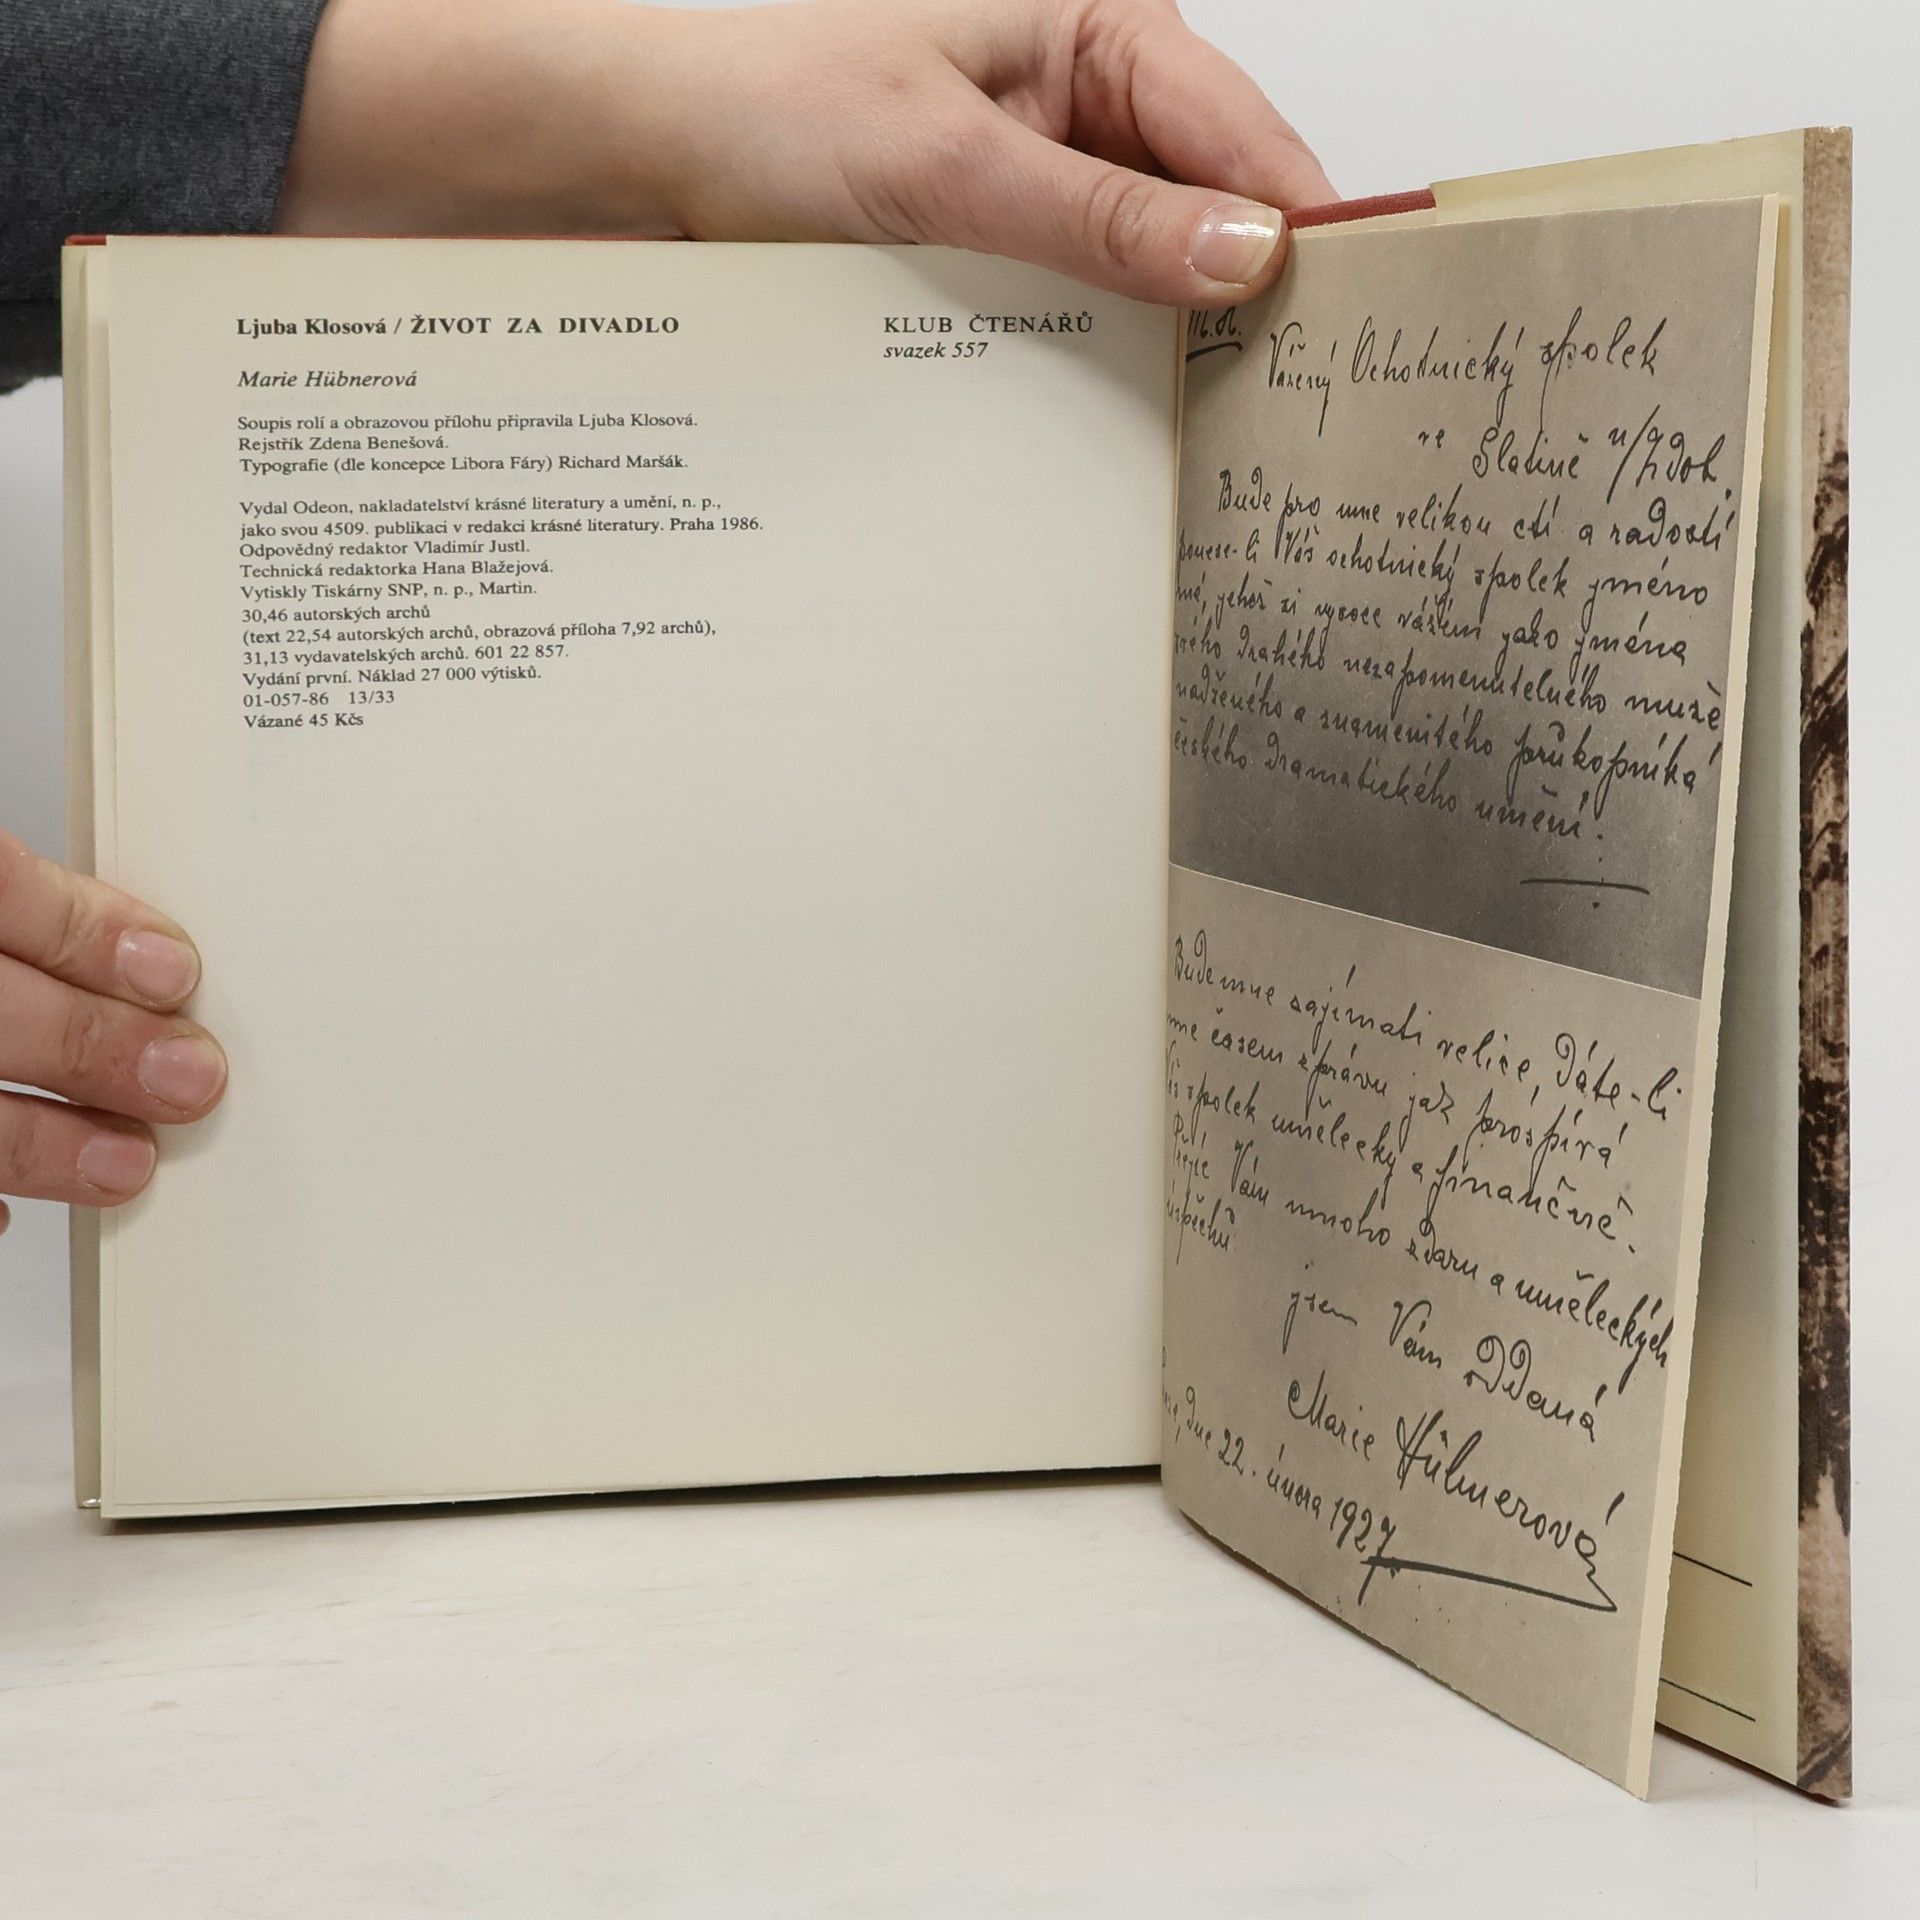 Ljuba Klosová / ŽIVOT ZA DIVADLO
Marie Hübnerová
Soupis rolí a obrazovou přílohu připravila Ljuba Klosová.
Rejstřík Zdena Benešová.
Typografie (dle koncepce Libora Fáry) Richard Maršák.
Vydal Odeon, nakladatelství krásné literatury a umění, n. p.,
jako svou 4509. publikaci v redakci krásné literatury. Praha 1986.
Odpovědný redaktor Vladimír Justl.
Technická redaktorka Hana Blažejová.
Vytiskly Tiskárny SNP, n. p., Martin.
30,46 autorských archů
(text 22,54 autorských archů, obrazová příloha 7,92 archů),
31,13 vydavatelských archů. 601 22 857.
Vydání první. Náklad 27 000 výtisků.
01-057-86 13/33
Vázané 45 Kčs
KLUB ČTENÁŘŮ
svazek 557
Vážený Ochotnický spolek
ve Slatině n/Zdob.
Bude pro mne velikou ctí a radostí
ponese-li Váš ochotnický spolek jméno
mé, jehož si vysoce vážím jako jména
mého drahého nezapomenutelného muže
nadšeného a znamenitého průkopníka
českého dramatického umění.
Bude mne zajímati velice, dáte-li
mne časem zprávu jak prospívá
Váš spolek umělecky a finančně.
Přeje Vám mnoho zdaru a uměleckých
úspěchů
jsem Vám oddaná
Marie Hübnerová
dne 22. února 1927.